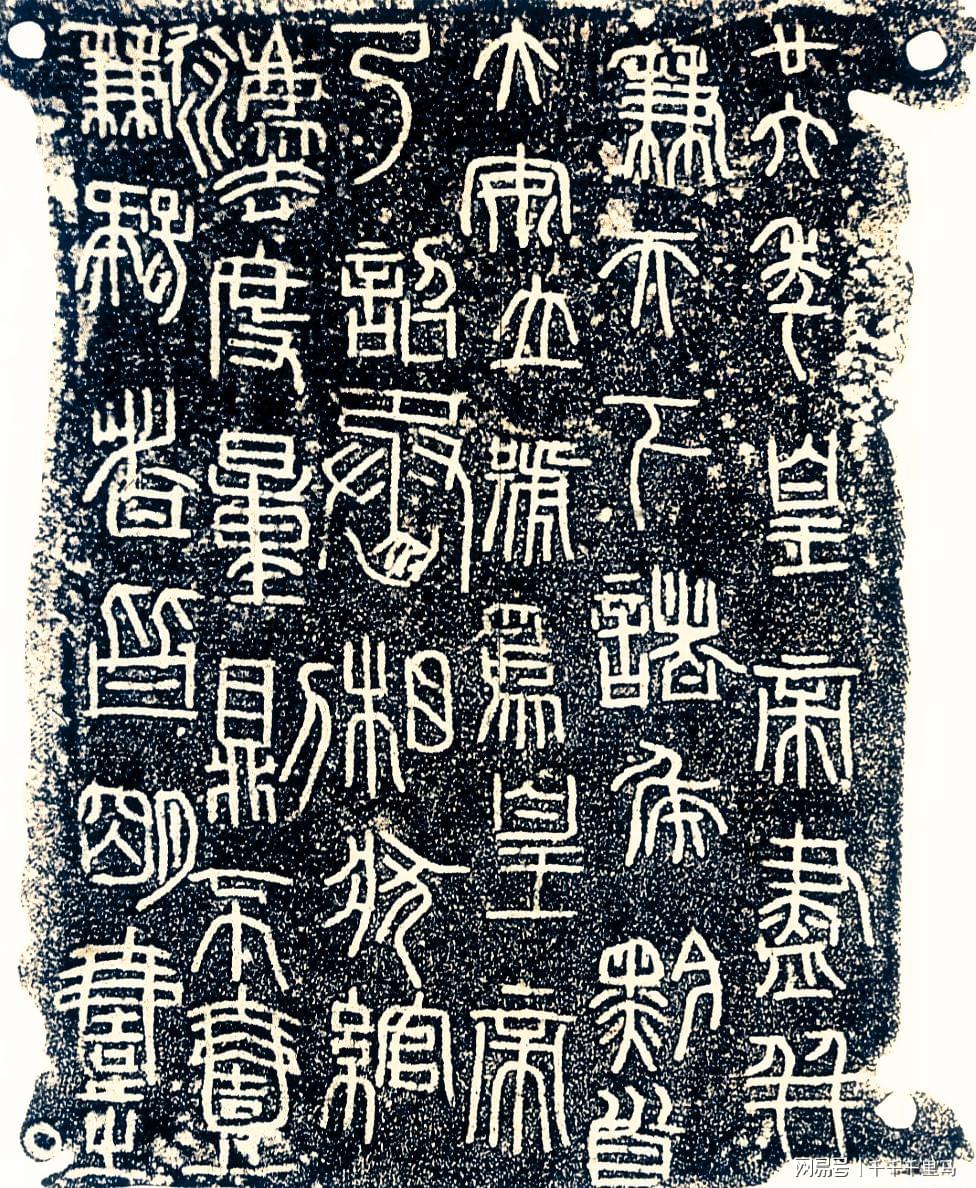 廿六年皇帝盡并
兼天下諸侯黔首
大安立號為皇帝
乃詔丞相狀綰
灋度量則不壹
歉疑者皆明壹之
网易号